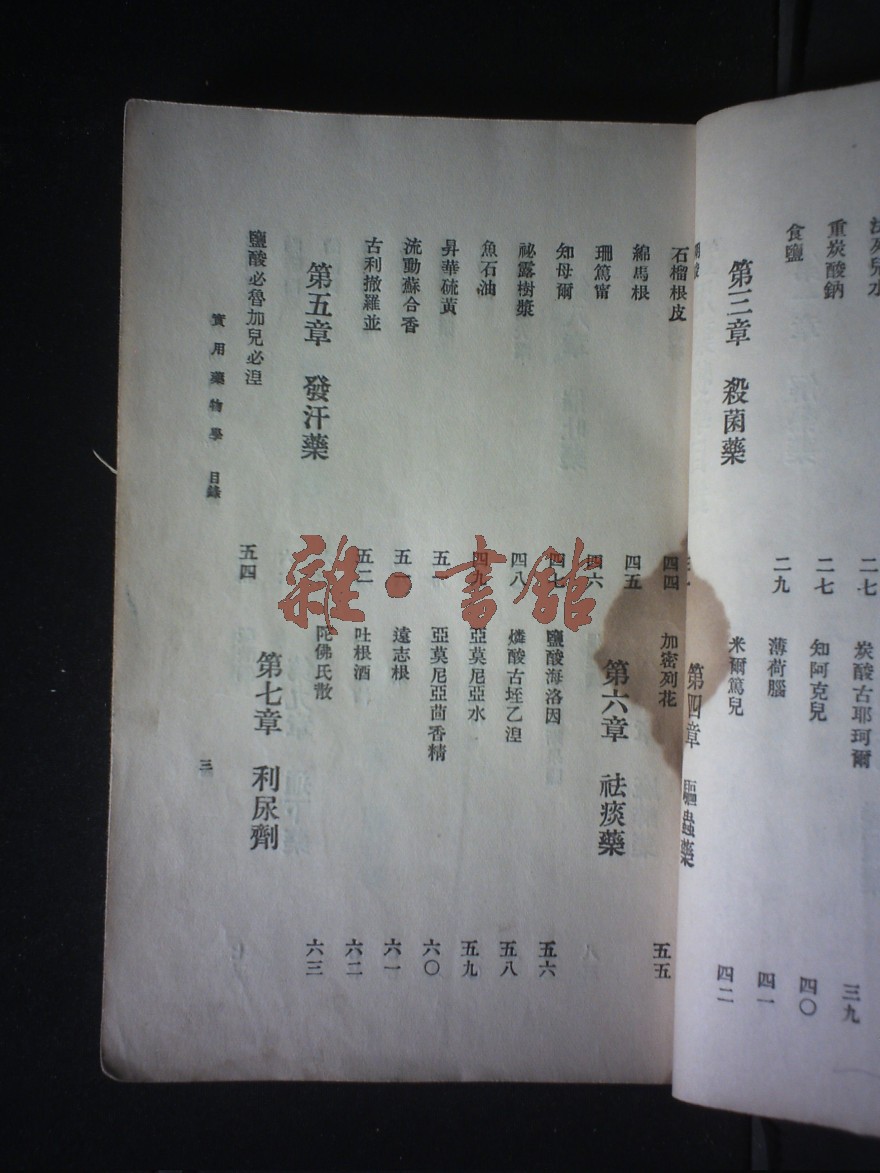 重炭酸鈉 二七
食鹽 二九
第三章 殺菌藥
炭酸古耶珂爾 三九
知阿克兒 四〇
薄荷腦 四一
米爾篤兒 四二
第四章 驅蟲藥
石榴根皮 四四
綿馬根 四五
珊篤甯 四六
知母爾 四七
祕露樹漿 四八
魚石油 四九
昇華硫黃 五一
流動蘇合香 五一
古利撒羅並 五二
第五章 發汗藥
鹽酸必魯加兒必涅 五四
加密列花 五五
第六章 祛痰藥
鹽酸海洛因 五六
燐酸古垤乙涅 五八
亞莫尼亞水 五九
亞莫尼亞茴香精 六〇
遠志根 六一
吐根酒 六二
陀佛氏散 六三
第七章 利尿劑
實用藥物學 目錄
三
雜·書館